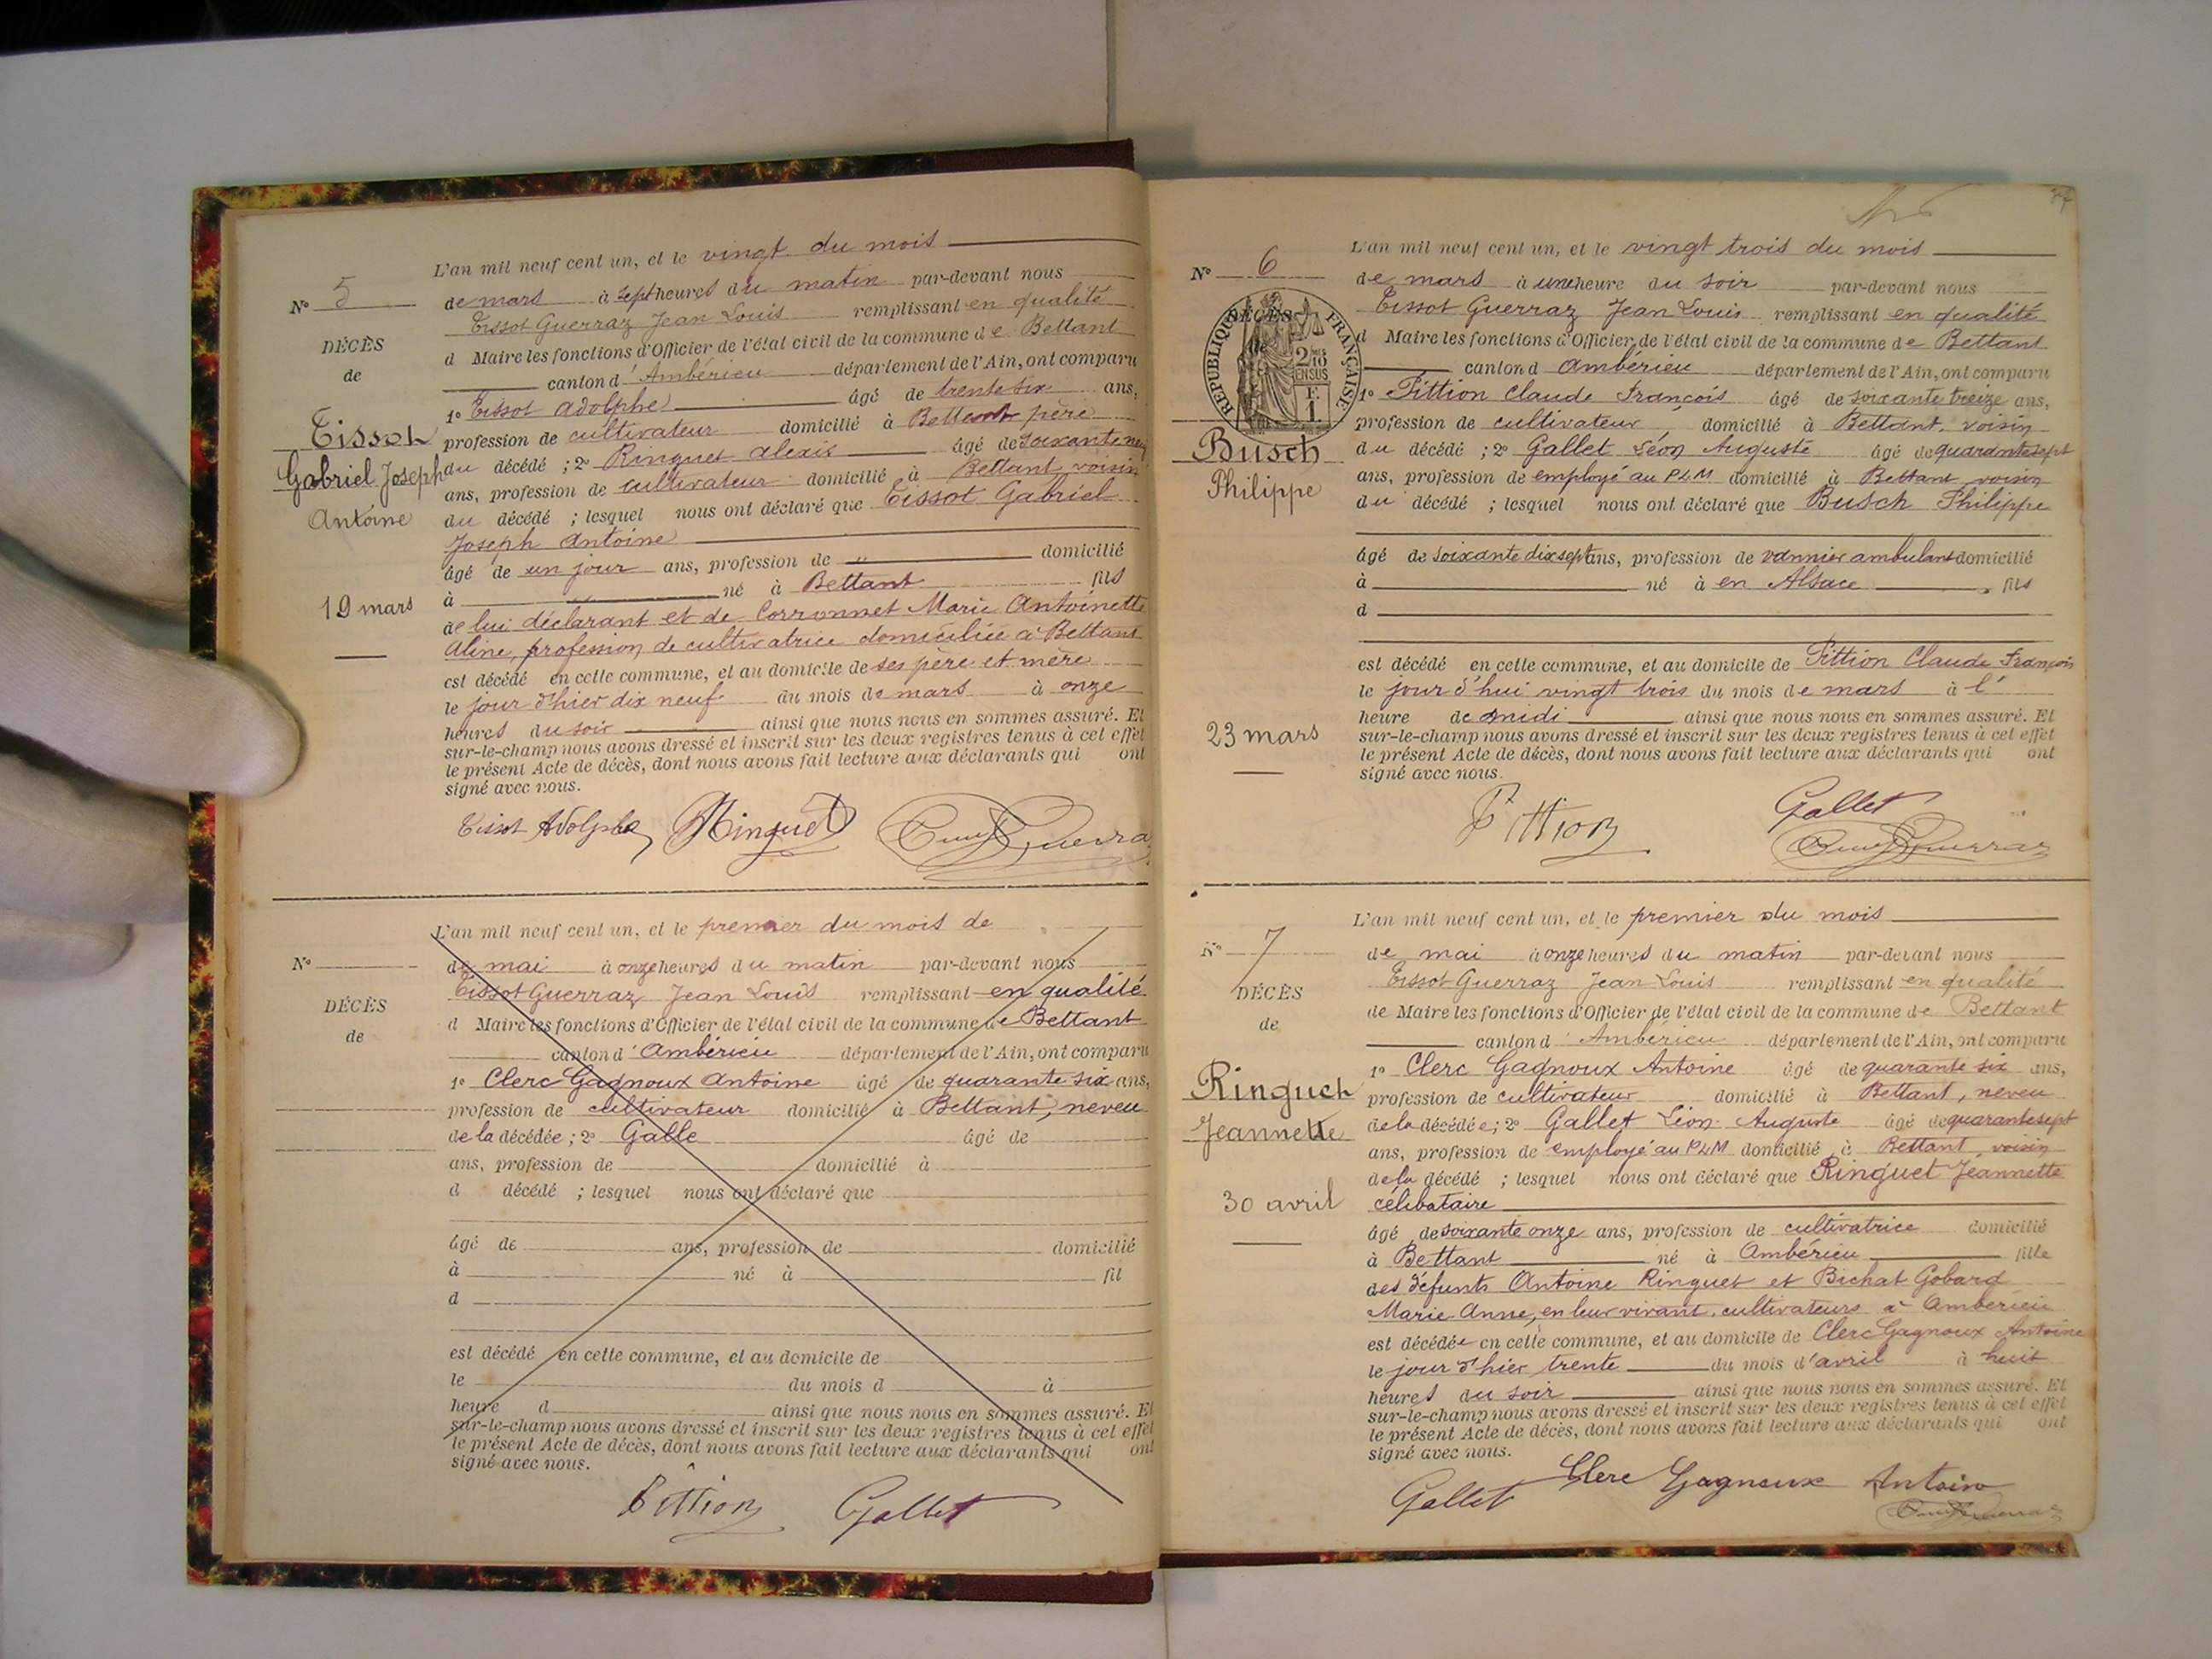 L'an mil neuf cent un, et le vingt du mois
N° 5
de mars à sept heures du matin par-devant nous
Tissot Guerraz Jean Louis remplissant en qualité
DÉCÈS
d Maire les fonctions d'Officier de l'état civil de la commune de Bettant
de
canton d'Ambérieu département de l'Ain, ont comparu
1° Tissot Adolphe âgé de trente six ans,
Tissot
profession de cultivateur domicilié à Bettant père
Gabriel Joseph
du décédé ; 2° Ringuet Alexis âgé de soixante neuf
ans, profession de cultivateur domicilié à Bettant voisin
Antoine
du décédé ; lesquel nous ont déclaré que Tissot Gabriel
Joseph Antoine
âgé de un jour ans, profession de " domicilié
19 mars
à né à Bettant fils
de lui déclarant et de Corronnet Marie Antoinette
Aline, profession de cultivatrice domiciliée à Bettant
est décédé en cette commune, et au domicile de ses père et mère
le jour d'hier dix neuf du mois de mars à onze
heures du soir ainsi que nous nous en sommes assuré. Et
sur-le-champ nous avons dressé et inscrit sur les deux registres tenus à cet effet
le présent Acte de décès, dont nous avons fait lecture aux déclarants qui ont
signé avec nous.
Tissot Adolphe Ringuet Guerraz
L'an mil neuf cent un, et le premier du mois de
N°
de mai à onze heures du matin par-devant nous
Tissot Guerraz Jean Louis remplissant en qualité
DÉCÈS
d Maire les fonctions d'Officier de l'état civil de la commune de Bettant
de
canton d'Ambérieu département de l'Ain, ont comparu
1° Clerc Gagnoux Antoine âgé de quarante six ans,
profession de cultivateur domicilié à Bettant, neveu
de la décédée ; 2° Galle âgé de
ans, profession de domicilié à
d décédé ; lesquel nous ont déclaré que
âgé de ans, profession de domicilié
à né à fil
d
est décédé en cette commune, et au domicile de
le du mois d à
heure d ainsi que nous nous en sommes assuré. Et
sur-le-champ nous avons dressé et inscrit sur les deux registres tenus à cet effet
le présent Acte de décès, dont nous avons fait lecture aux déclarants qui ont
signé avec nous.
Pittion Gallet
L'an mil neuf cent un, et le vingt trois du mois
N° 6
de mars à une heure du soir par-devant nous
Tissot Guerraz Jean Louis remplissant en qualité
DÉCÈS
RÉPUBLIQUE FRANÇAISE
d Maire les fonctions d'Officier de l'état civil de la commune de Bettant
de
canton d Ambérieu département de l'Ain, ont comparu
1° Pittion Claude François âgé de soixante treize ans,
profession de cultivateur, domicilié à Bettant, voisin
Busch
du décédé ; 2° Gallet Léon Auguste âgé de quarante sept
Philippe
ans, profession de employé au PLM domicilié à Bettant voisin
du décédé ; lesquel nous ont déclaré que Busch Philippe
âgé de soixante dix sept ans, profession de vannier ambulant domicilié
à né à en Alsace fils
d
est décédé en cette commune, et au domicile de Pittion Claude François
le jour d'hui vingt trois du mois de mars à l'
23 mars
heure de midi ainsi que nous nous en sommes assuré. Et
sur-le-champ nous avons dressé et inscrit sur les deux registres tenus à cet effet
le présent Acte de décès, dont nous avons fait lecture aux déclarants qui ont
signé avec nous.
Pittion Gallet
Guerraz
L'an mil neuf cent un, et le premier du mois
N° 7
de mai à onze heures du matin par-devant nous
Tissot Guerraz Jean Louis remplissant en qualité
DÉCÈS
de Maire les fonctions d'Officier de l'état civil de la commune de Bettant
de
canton d'Ambérieu département de l'Ain, ont comparu
1° Clerc Gagnoux Antoine âgé de quarante six ans,
Ringuet
profession de cultivateur domicilié à Bettant, neveu
Jeannette
de la décédée ; 2° Gallet Léon Auguste âgé de quarante sept
ans, profession de employé au PLM domicilié à Bettant voisin
de la décédé ; lesquel nous ont déclaré que Ringuet Jeannette
30 avril
célibataire
âgé de soixante onze ans, profession de cultivatrice domicilié
à Bettant né à Ambérieu fille
des défunts Antoine Ringuet et Bichat Gobard
Marie Anne, en leur vivant, cultivateurs à Ambérieu
est décédée en cette commune, et au domicile de Clerc Gagnoux Antoine
le jour d'hier trente du mois d'avril à huit
heures du soir ainsi que nous nous en sommes assuré. Et
sur-le-champ nous avons dressé et inscrit sur les deux registres tenus à cet effet
le présent Acte de décès, dont nous avons fait lecture aux déclarants qui ont
signé avec nous.
Gallet Clerc Gagnoux Antoine
Guerraz